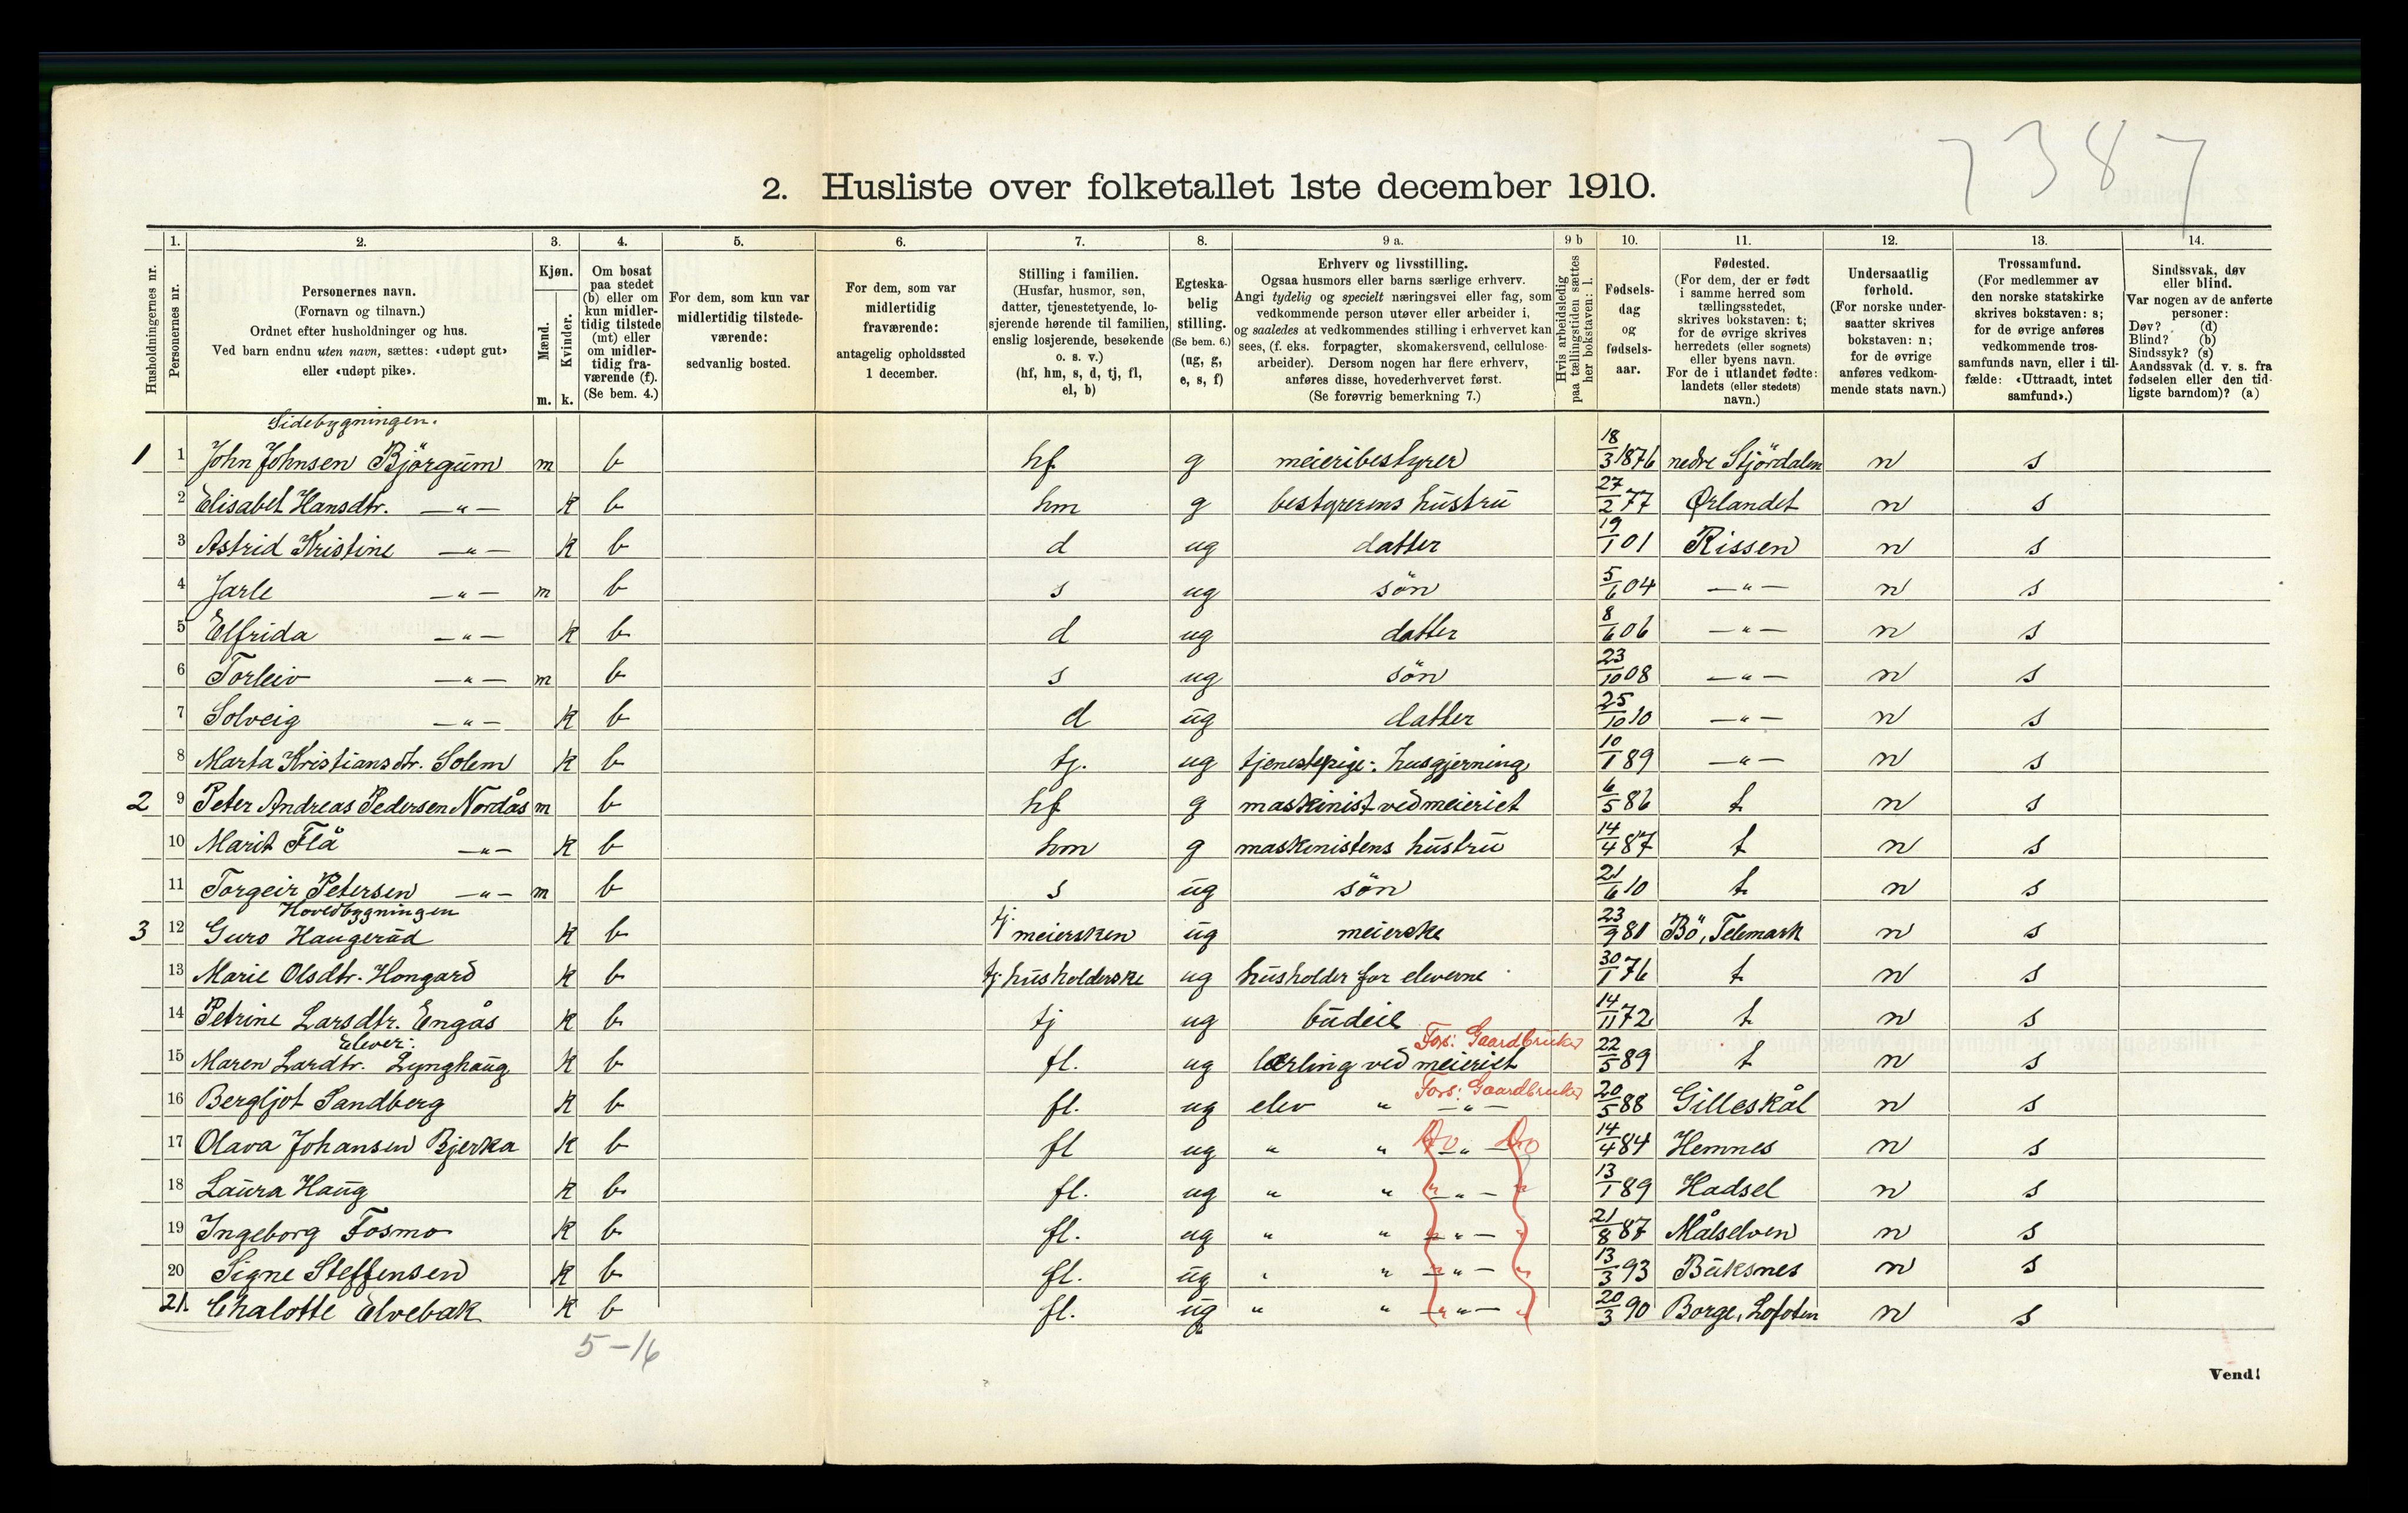 7387
2. Husliste over folketallet 1ste december 1910.
Husholdningernes nr.
1. Personernes nr.
2. Personernes navn.
(Fornavn og tilnavn.)
Ordnet efter husholdninger og hus.
Ved barn endnu uten navn, sættes: «udøpt gut»
eller «udøpt pike».
3. Kjøn.
Mænd. m.
Kvinder. k.
4. Om bosat
paa stedet
(b) eller om
kun midler-
tidig tilstede
(mt) eller
om midler-
tidig fra-
værende (f).
(Se bem. 4.)
5. For dem, som kun var
midlertidig tilstede-
værende:
sedvanlig bosted.
6. For dem, som var
midlertidig
fraværende:
antagelig opholdssted
1 december.
7. Stilling i familien.
(Husfar, husmor, søn,
datter, tjenestetyende, lo-
sjerende hørende til familien,
enslig losjerende, besøkende
o. s. v.)
(hf, hm, s, d, tj, fl,
el, b)
8. Egteska-
belig
stilling.
(Se bem. 6.)
(ug, g,
e, s, f)
9 a. Erhverv og livsstilling.
Ogsaa husmors eller barns særlige erhverv.
Angi tydelig og specielt næringsvei eller fag, som
vedkommende person utøver eller arbeider i,
og saaledes at vedkommendes stilling i erhvervet kan
sees, (f. eks. forpagter, skomakersvend, cellulose-
arbeider). Dersom nogen har flere erhverv,
anføres disse, hovederhvervet først.
(Se forøvrig bemerkning 7.)
9 b Hvis arbeidsledig
paa tællingstiden sættes
her bokstaven: l.
10. Fødsels-
dag
og
fødsels-
aar.
11. Fødested.
(For dem, der er født
i samme herred som
tællingsstedet,
skrives bokstaven: t;
for de øvrige skrives
herredets (eller sognets)
eller byens navn.
For de i utlandet fødte:
landets (eller stedets)
navn.)
12. Undersaatlig
forhold.
(For norske under-
saatter skrives
bokstaven: n;
for de øvrige
anføres vedkom-
mende stats navn.)
13. Trossamfund.
(For medlemmer av
den norske statskirke
skrives bokstaven: s;
for de øvrige anføres
vedkommende tros-
samfunds navn, eller i til-
fælde: «Uttraadt, intet
samfund».)
14. Sindssvak, døv
eller blind.
Var nogen av de anførte
personer:
Døv? (d)
Blind? (b)
Sindssyk? (s)
Aandssvak (d. v. s. fra
fødselen eller den tid-
ligste barndom)? (a)
Sidebygningen.
1 1 John Johnsen Björgum m b hf g meieribestyrer 18/3 1876 nedre Stjördalen n s
2 Elisabet Hansdtr. —"— k b hm g bestyrerens hustru 27/2 77 Ørlandet n s
3 Astrid Kristine —"— k b d ug datter 19/1 01 Rissen n s
4 Jarle —"— m b s ug sön 5/6 04 —"— n s
5 Elfrida —"— k b d ug datter 8/6 06 —"— n s
6 Torleiv —"— m b s ug sön 23/10 08 —"— n s
7 Solveig —"— k b d ug datter 25/10 10 —"— n s
8 Marta Kristiansdtr. Solem k b tj. ug tjenestepige: husgjerning 10/1 89 —"— n s
2 9 Peter Andreas Pedersen Nordås m b hf g maskinist ved meieriet 6/5 86 t n s
10 Marit Flå —"— k b hm g maskinistens hustru 14/4 87 t n s
11 Torgeir Petersen —"— m b s ug sön 21/6 10 t n s
Hovedbygningen
3 12 Guro Haugeråd k b tj meiersken ug meierske 23/9 81 Bö, Telemark n s
13 Marie Olsdtr. Hongard k b tj husholderske ug husholder for eleverne 30/1 76 t n s
14 Petrine Larsdtr. Engås k b tj ug budeie 14/11 72 t n s
Elever: Fors: Gaardbruker
15 Maren Lardtr. Lynghaug k b fl. ug lærling ved meieriet 22/5 89 t n s
Fors: Gaardbruker
16 Bergljot Sandberg k b fl. ug elev " —"— 20/5 88 Gilleskål n s
17 Olava Johansen Bjerka k b fl ug " " Do —"— Do 14/4 84 Hemnes n s
18 Laura Haug k b fl. ug " " " —"— " 13/1 89 Hadsel n s
19 Ingeborg Fosmo k b fl. ug " " " —"— " 21/8 87 Målselven n s
20 Signe Steffensen k b fl. ug " " " —"— " 13/3 93 Buksnes n s
21. Chalotte Elvebak k b fl. ug " " " —"— " 20/3 90 Borge, Lofoten n s
5-16
Vend!